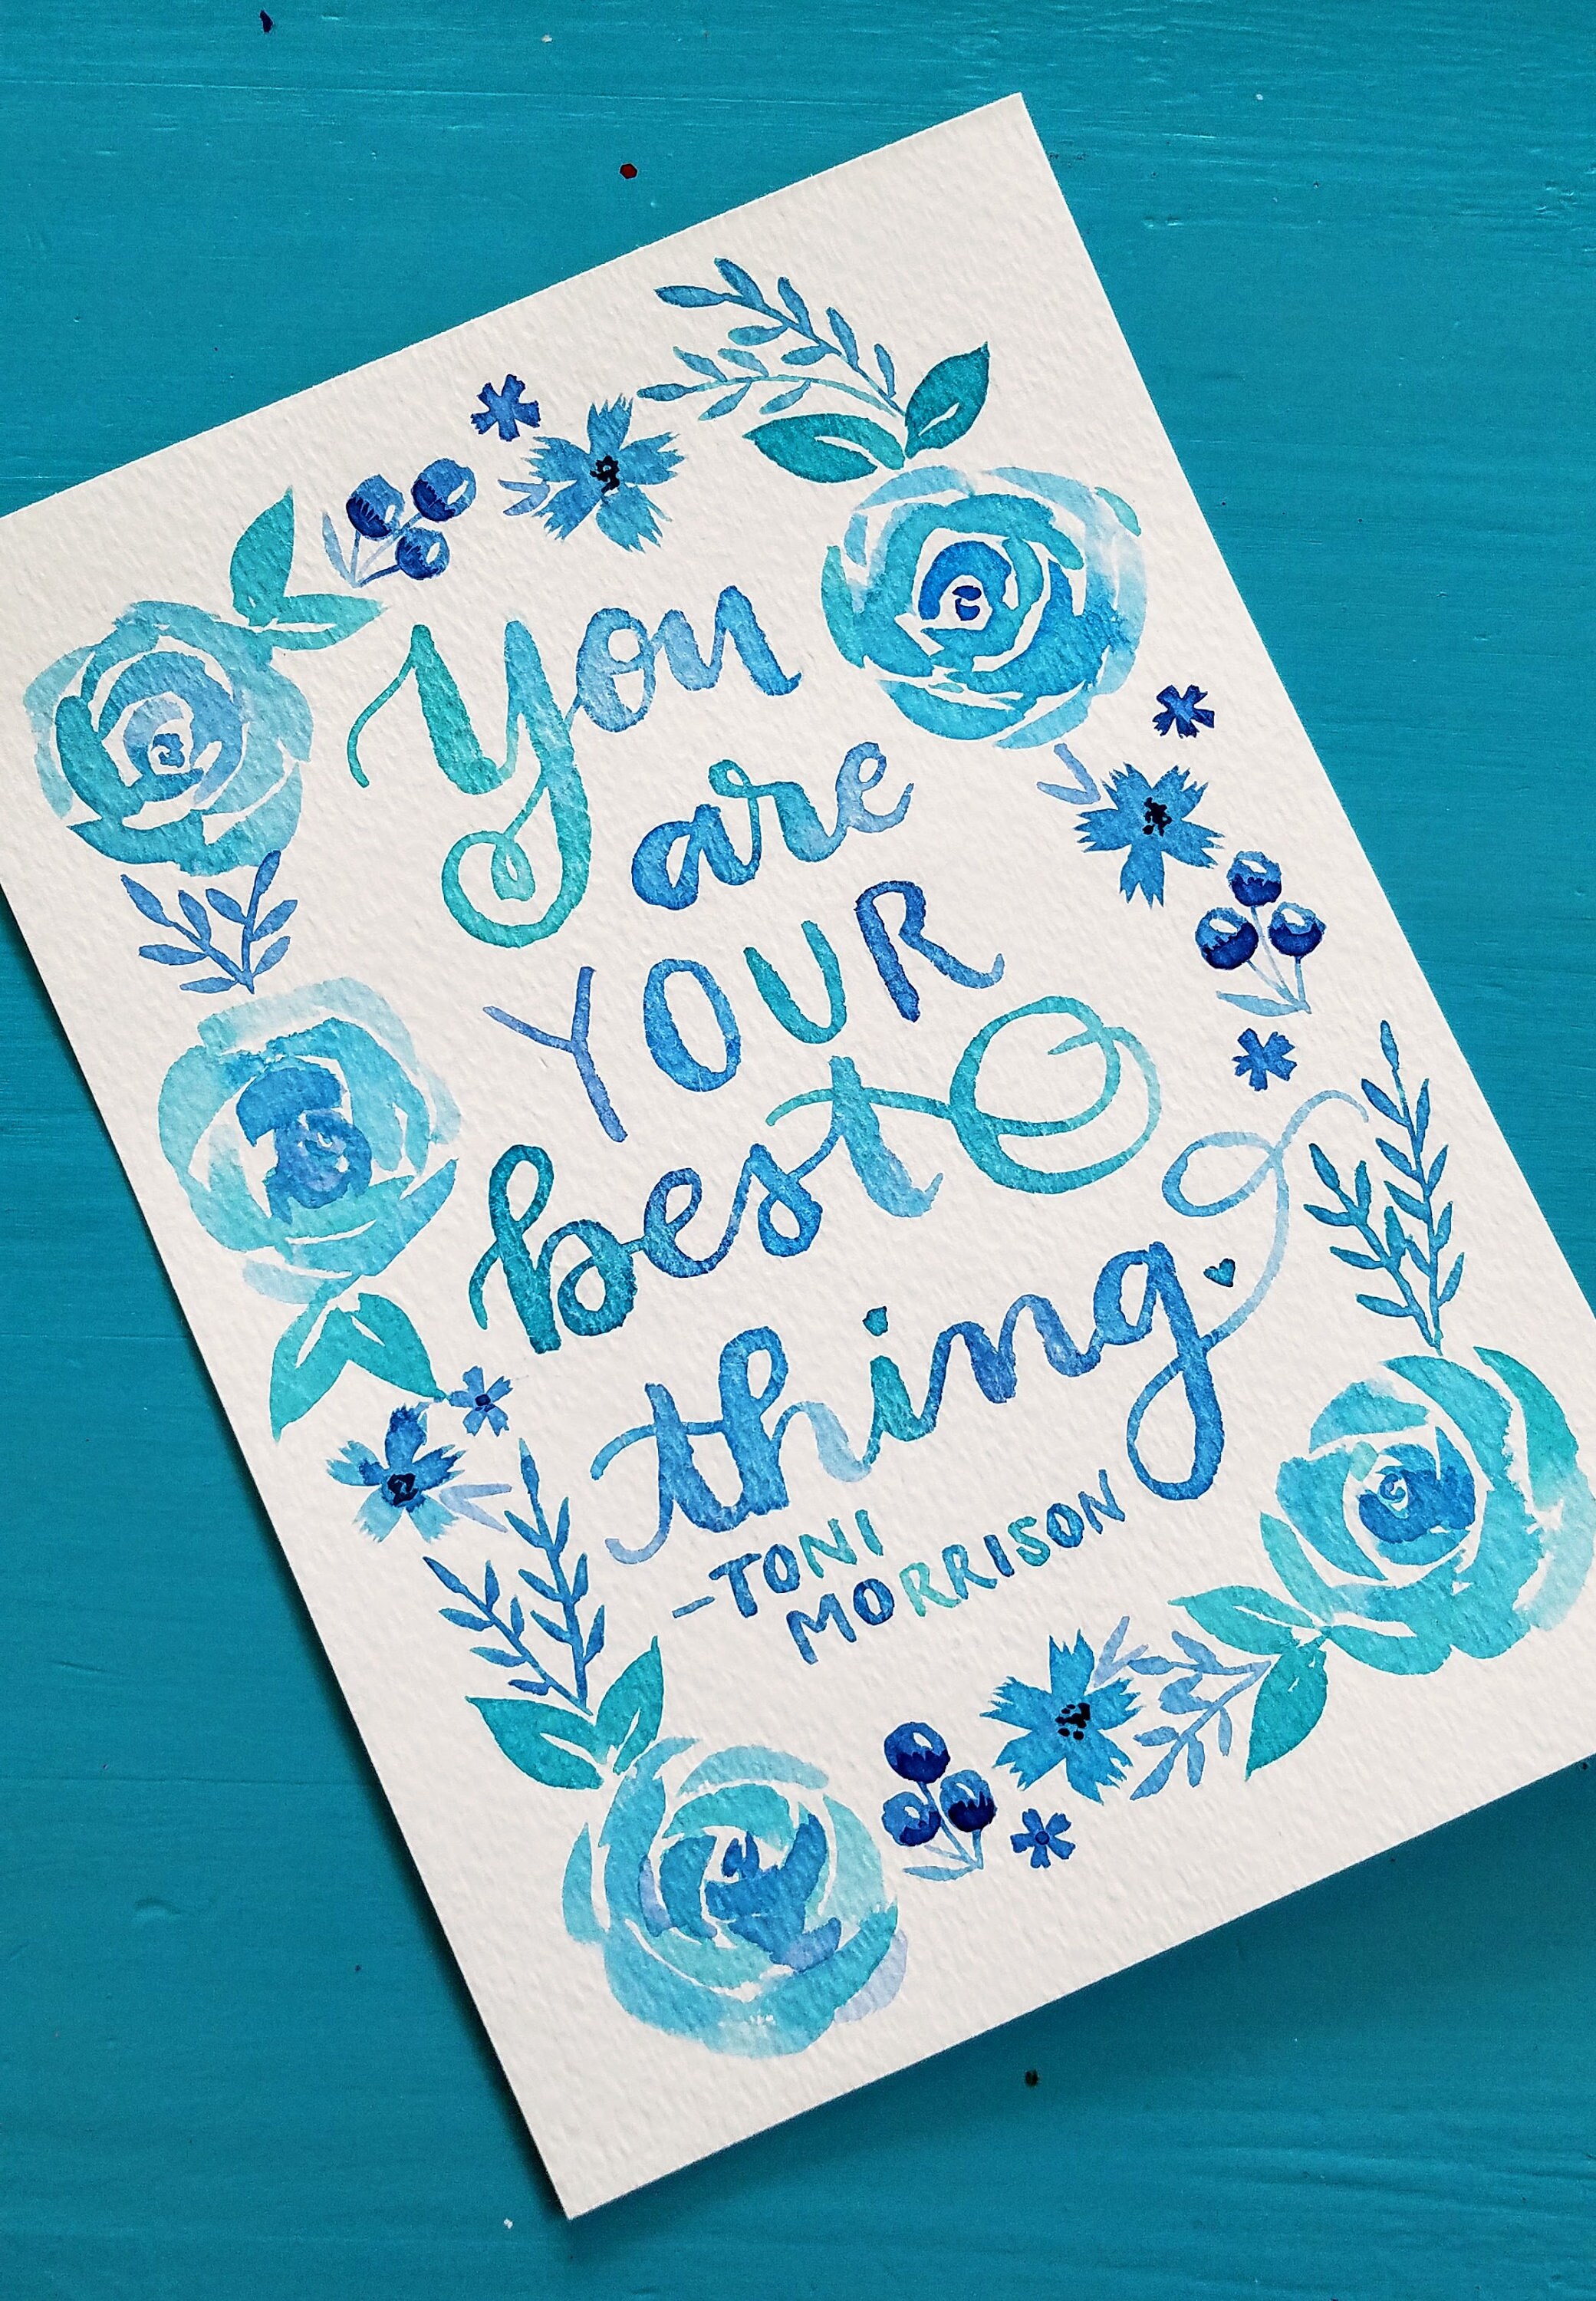 You
are
YOUR
best
thing.
-TONI
MORRISON